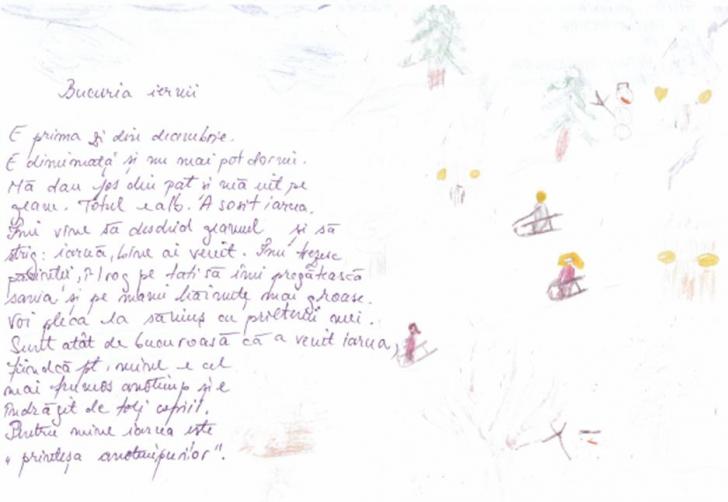 Bucuria iernii
E prima zi din decembrie.
E dimineață și nu mai pot dormi.
Mă dau jos din pat și mă uit pe
geam. Totul e alb. A sosit iarna.
Îmi vine să deschid geamul și să
strig: iarnă, bine ai venit. Îmi trezesc
părinții, îl rog pe tati să îmi pregătească
sania și pe mami hăinuțe mai groase.
Voi pleca la săniuș cu prietenii mei.
Sunt atât de bucuroasă că a venit iarna,
fiindcă pt. mine e cel
mai frumos anotimp și e
îndrăgit de toți copiii.
Pentru mine iarna este
„prințesa anotimpurilor".